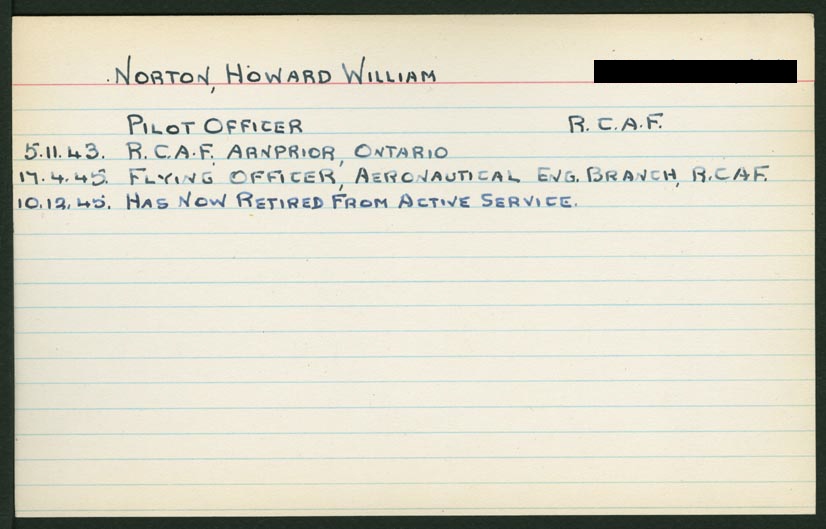 NORTON, HOWARD WILLIAM
PILOT OFFICER R.C.A.F.
5.11.43. R.C.A.F. ARNPRIOR, ONTARIO
17.4.45. FLYING OFFICER, AERONAUTICAL ENG. BRANCH, R.C.A.F.
10.12.45. HAS NOW RETIRED FROM ACTIVE SERVICE.